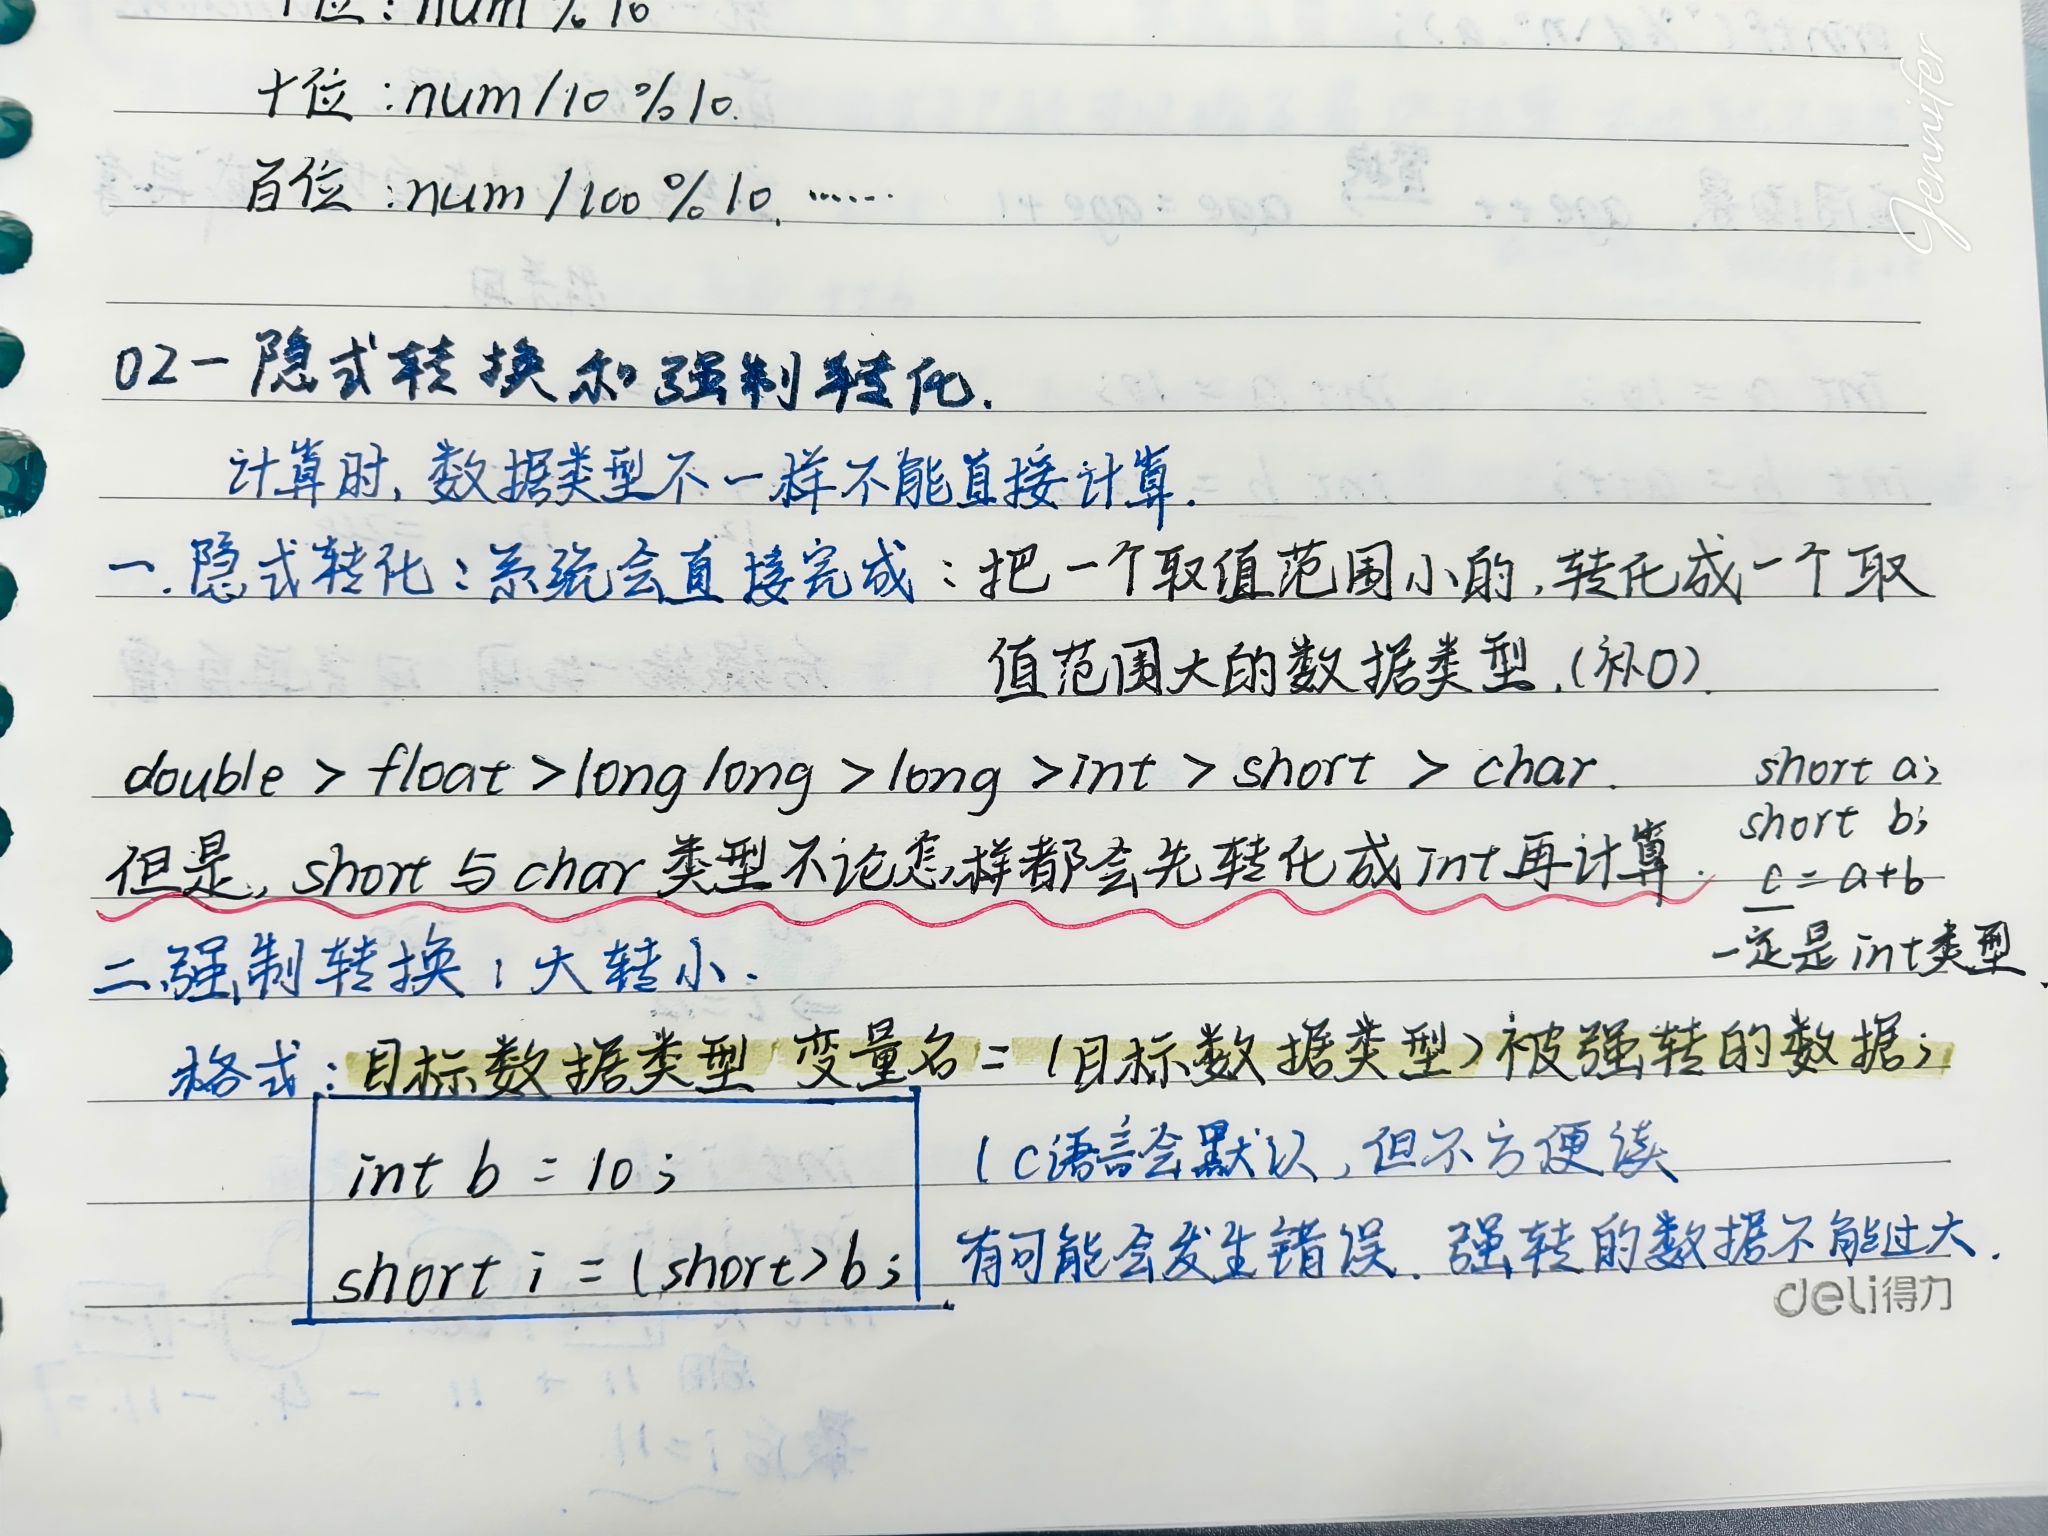 位: num % 10
十位: num/10 % 10.
百位: num/100 % 10. ……
Jennifer
02-隐式转换和强制转化.
计算时, 数据类型不一样不能直接计算.
一.隐式转化: 系统会直接完成: 把一个取值范围小的, 转化成一个取
值范围大的数据类型.(补0).
double > float > long long > long > int > short > char.
short a;
short b;
但是, short与char类型不论怎样都会先转化成int再计算.
c = a+b
一定是int类型.
二.强制转换: 大转小.
格式: 目标数据类型 变量名 = (目标数据类型)被强转的数据;
int b = 10;
(C语言会默认, 但不方便读
short i = (short)b;
有可能会发生错误. 强转的数据不能过大.
deli得力